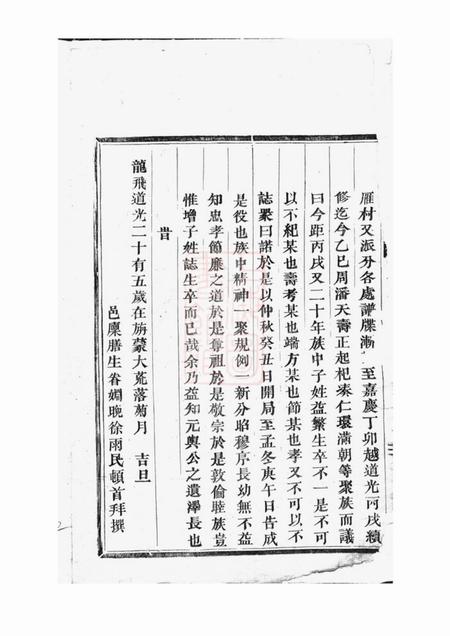 雁村又派分各處譜牒漸 至嘉慶丁卯越道光丙戌續
修迄今乙巳周潘天壽正起杞泰仁環滿朝等聚族而議
曰今距丙戌又二十年族中子姓益繁生卒不一是不可
以不紀某也壽考某也端方某也節某也孝又不可以不
誌衆曰諾於是以仲秋癸丑日開局至孟冬庚午日告成
是役也族中精神一聚規例一新分昭穆序長幼無不益
知忠孝節廉之道於是尊祖於是敬宗於是敦倫睦族豈
惟增子姓誌生卒而已哉余乃益知元輿公之遺澤長也
旹
龍飛道光二十有五歲在旃蒙大荒落菊月 吉旦
邑廩膳生眷姻晚徐雨民頓首拜撰